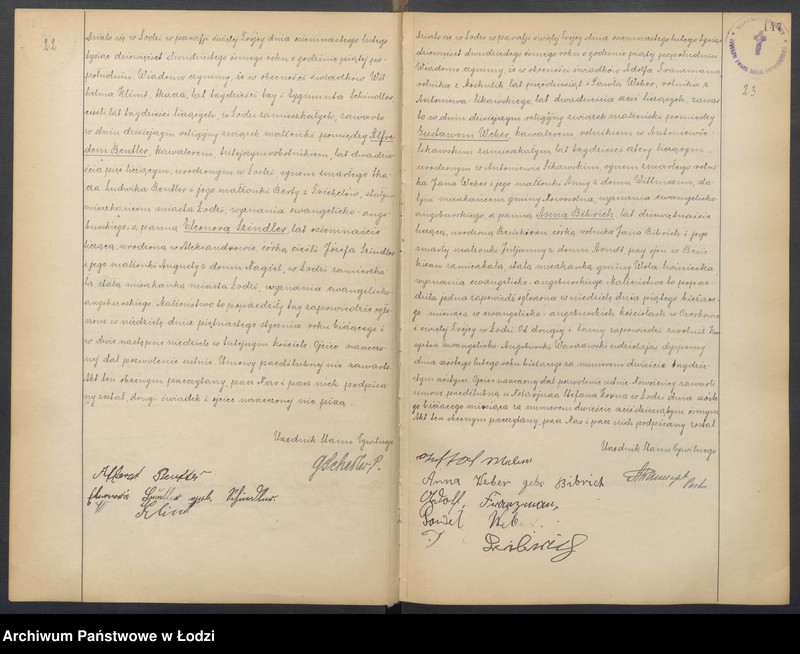 22
Działo się w Łodzi w parafji świętej Trójcy dnia osiemnastego lutego
tysiąc dziewięćset dwudziestego ósmego roku o godzinie piątej po-
południu. Wiadomo czynimy, że w obecności świadków Wil-
helma Klimt, tkacza, lat trzydzieści trzy i Zygmunta Schindler,
cieśli, lat trzydzieści liczących, w Łodzi zamieszkałych, zawarto
w dniu dzisiejszym religijny związek małżeński pomiędzy Alfre-
dem Beutler, kawalerem, tutejszym robotnikiem, lat dwadzie-
ścia pięć liczącym, urodzonym w Łodzi, synem zmarłego tka-
cza Ludwika Beutler i jego małżonki Berty z
mieszkańcem miasta Łodzi, wyznania ewangelicko-augs-
burskiego, a panną Eleonorą Szindler, lat osiemnaście
liczącą, urodzoną w Aleksandrowie, córką cieśli Józefa Szindler
i jego małżonki Augusty z domu Nagiel, w Łodzi zamieszka-
łą, stałą mieszkanką miasta Łodzi, wyznania ewangelicko-
augsburskiego. Małżeństwo to poprzedziły trzy zapowiedzie ogło-
szone w niedzielę dnia piętnastego stycznia roku bieżącego i
w dwie następne niedziele w tutejszym kościele. Ojciec narzeczo-
nej dał pozwolenie ustnie. Umowy przedślubnej nie zawarto.
Akt ten obecnym przeczytany, przez Nas i przez nich podpisa-
ny został, drugi świadek i ojciec narzeczonej nie piszą.
Urzędnik Stanu Cywilnego
GSchedler P.
Alfred Beutler
Schindler
Klimt
23
Działo się w Łodzi w parafji świętej Trójcy dnia osiemnastego lutego tysiąc
dziewięćset dwudziestego ósmego roku o godzinie piątej popołudniu.
Wiadomo czynimy, że w obecności świadków Adolfa Franzmann,
rolnika z Rokitnik, lat pięćdziesiąt i Pawła Weber, rolnika z
Antoniewa-Sikawskiego, lat dwadzieścia sześć liczących, zawar-
to w dniu dzisiejszym religijny związek małżeński pomiędzy
Gustawem Weber, kawalerem, rolnikiem w Antoniewie-
Sikawskim zamieszkałym, lat trzydzieści cztery liczącym,
urodzonym w Antoniewie Sikawskim, synem zmarłego rolni-
ka Jana Weber i jego małżonki Anny z domu Wittmann, sta-
łym mieszkańcem gminy Nowosolna, wyznania ewangelicko-
augsburskiego, a panną Anną Bibrich, lat dziewiętnaście
liczącą, urodzoną córką rolnika Jana Bibrich i jego
zmarłej małżonki Juljanny z domu Arndt, przy ojcu w
zamieszkałą, stałą mieszkanką gminy
wyznania ewangelicko-augsburskiego. Małżeństwo to poprze-
dziła jedna zapowiedź ogłoszona w niedzielę dnia piątego bieżące-
go miesiąca w ewangelicko-augsburskich kościołach w Ozorkowie
i świętej Trójcy w Łodzi. Od drugiej i trzeciej zapowiedzi zwolnił Kon-
systorz Ewangelicko-Augsburski Warszawski udzielając dyspensy
dnia szóstego lutego roku bieżącego za numerem dwieście trzydzie-
stym szóstym. Ojciec narzeczonej dał pozwolenie ustnie. Nowożeńcy zawarli
umowę przedślubną u Notarjusza Stefana Korna w Łodzi dnia szóste-
go bieżącego miesiąca za numerem dwieście sześćdziesiątym ósmym.
Akt ten obecnym przeczytany, przez Nas i przez nich podpisany został.
Urzędnik Stanu Cywilnego
Anna Weber geb. Bibrich
Adolf Franzmann,
Weber
Archiwum Państwowe w Łodzi